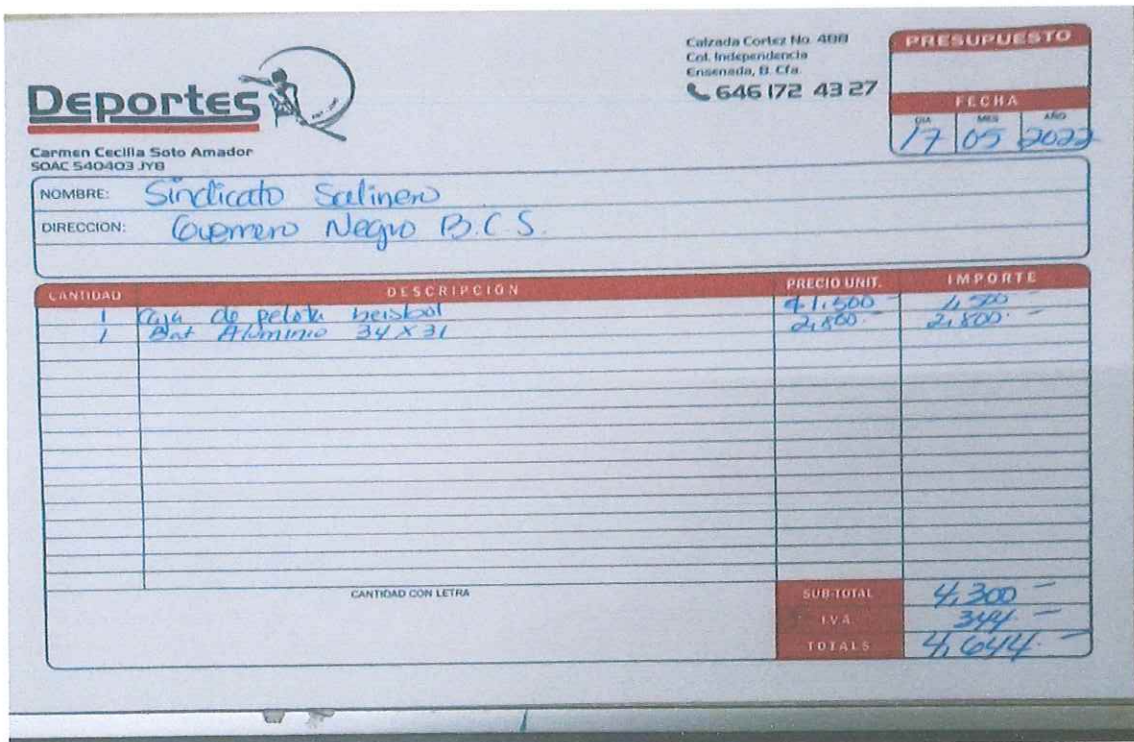 Deportes
Carmen Cecilia Soto Amador
SOAC 540403 JY8
Calzada Cortez No. 488
Col. Independencia
Ensenada, B. Cfa.
646 172 43 27
PRESUPUESTO
FECHA
DIA MES AÑO
17 05 2022
NOMBRE: Sindicato Salinero
DIRECCION: Guerrero Negro B.C.S.
CANTIDAD DESCRIPCIÓN PRECIO UNIT. IMPORTE
1 Caja de pelota beisbol $1,500 - 1,500 -
1 Bat Aluminio 34 X 31 2,800.- 2,800.-
CANTIDAD CON LETRA
SUB-TOTAL 4,300 -
I.V.A. 344 -
TOTAL $ 4,644.-